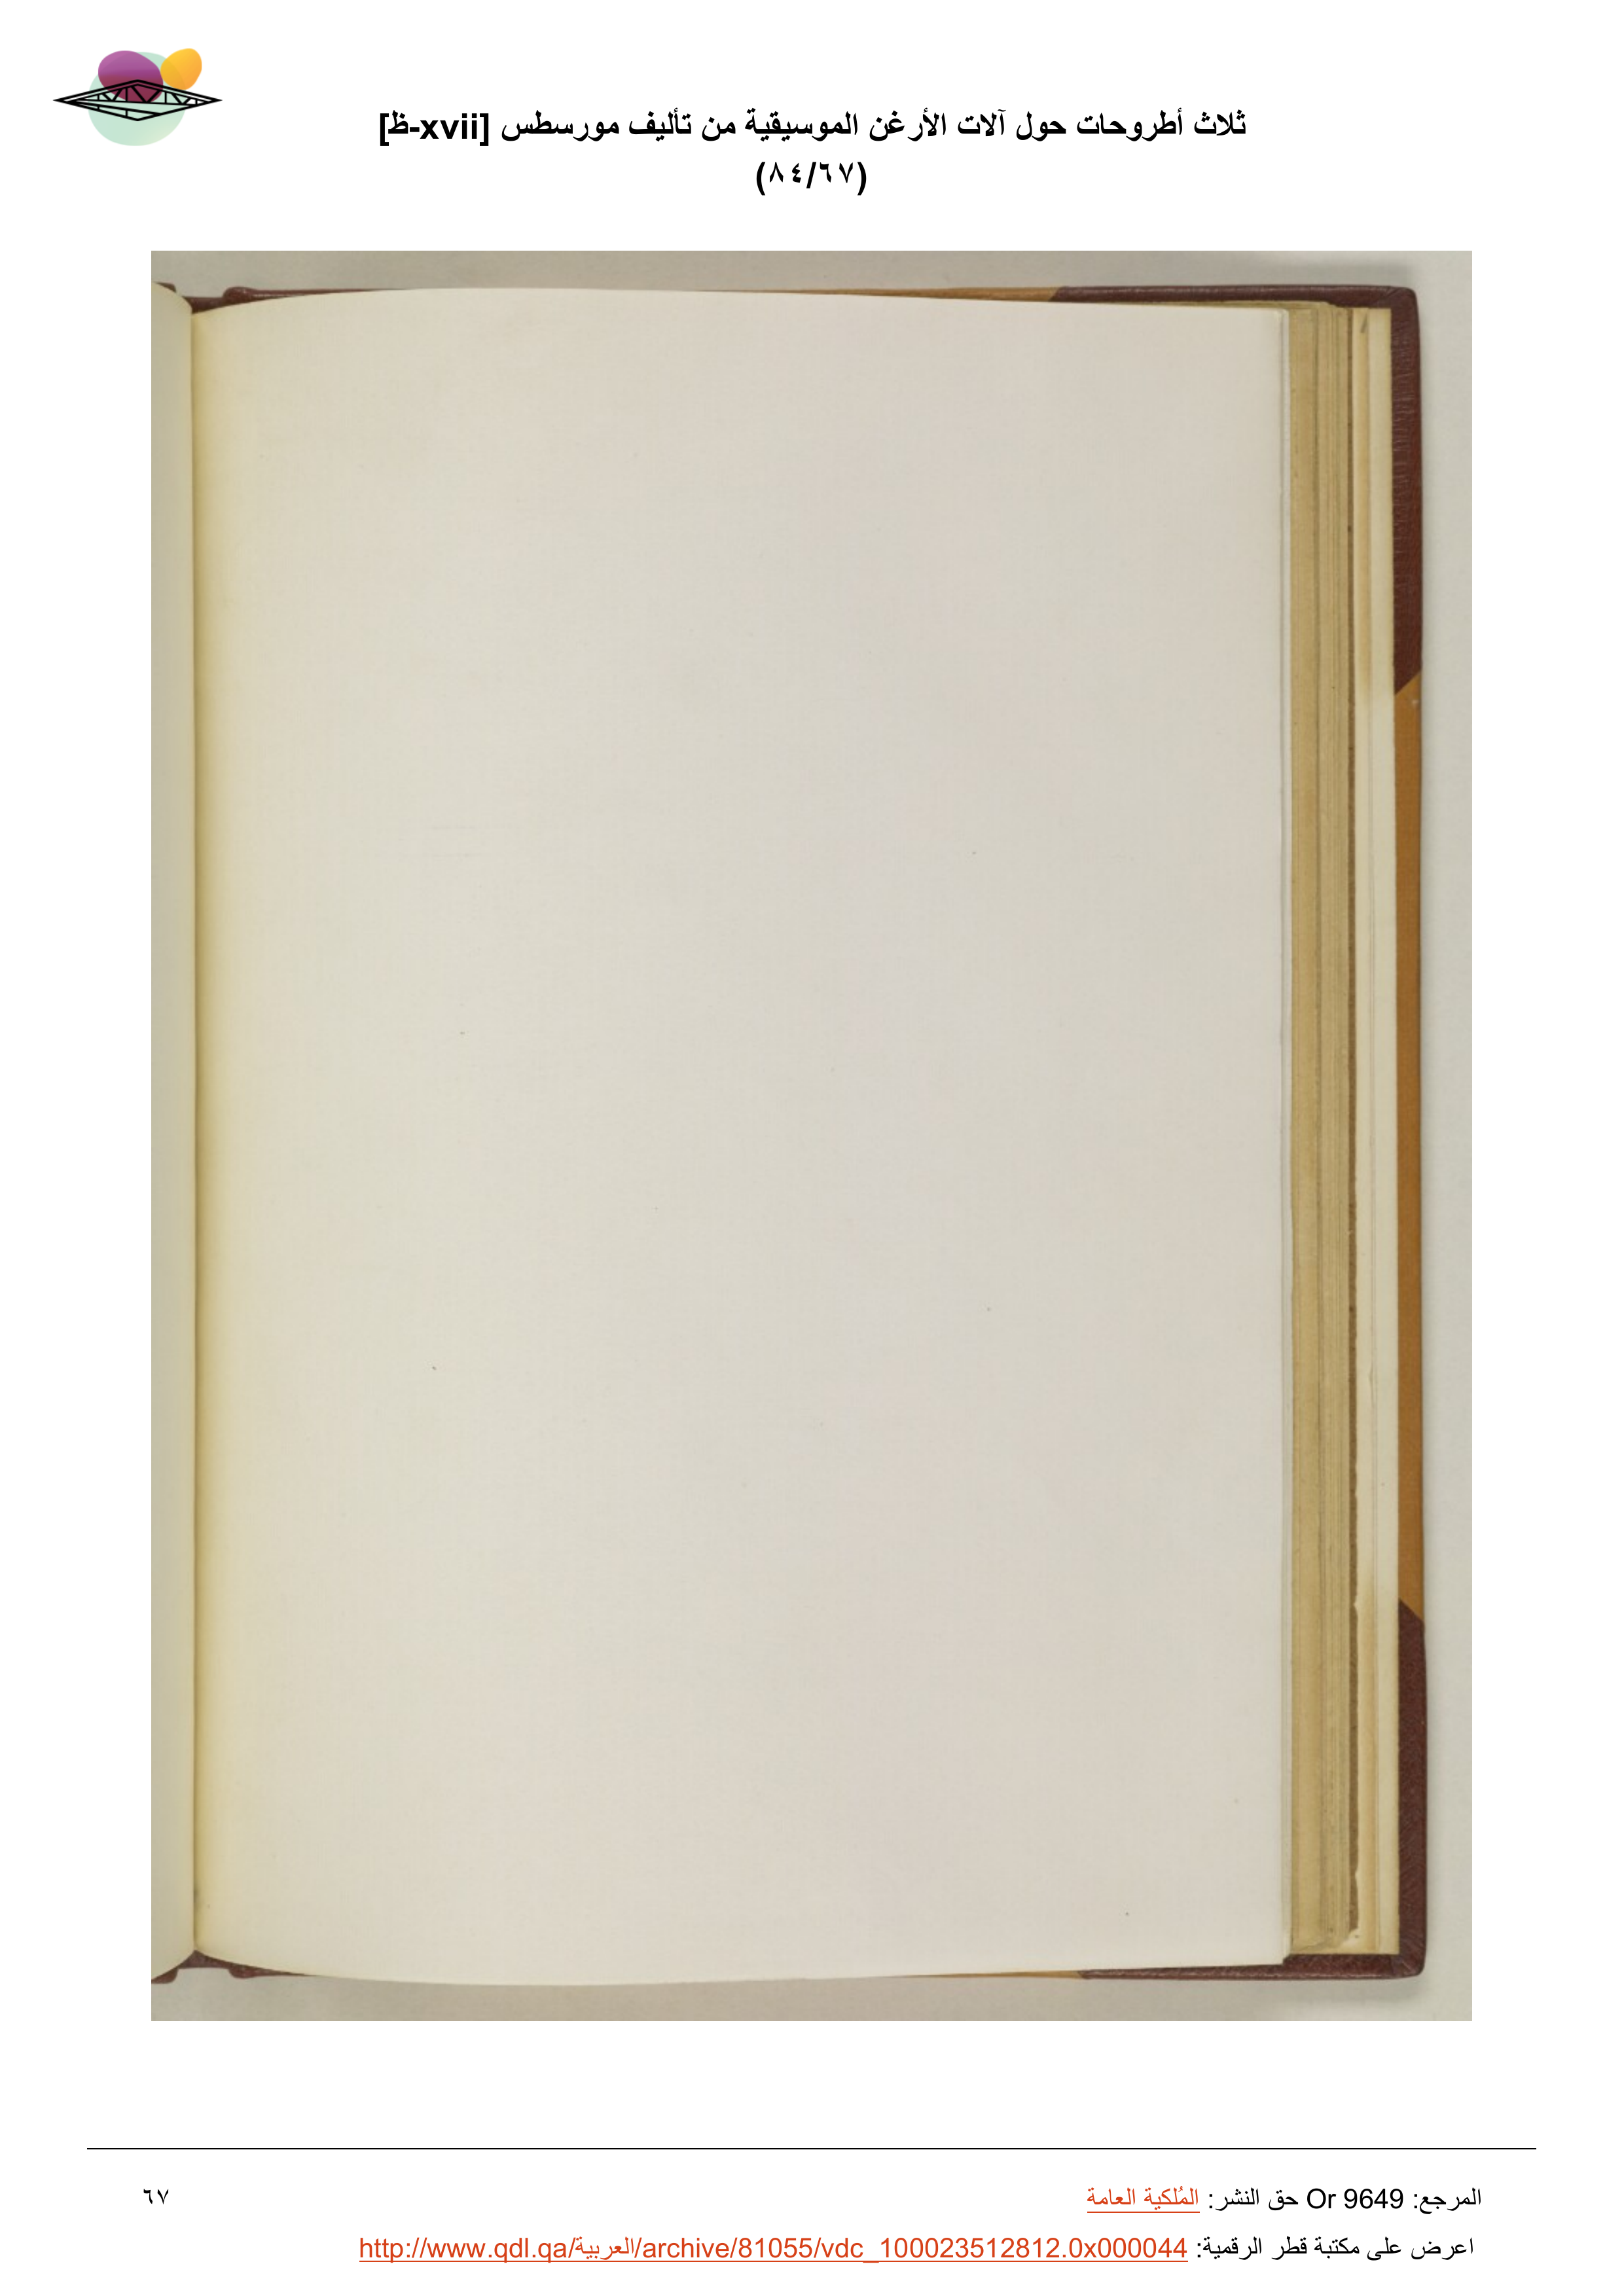 ثلاث أطروحات حول آلات الأرغن الموسيقية من تأليف مورسطس [xvii-ظ]
(٨٤/٦٧)
المرجع: Or 9649 حق النشر: المُلكية العامة
٦٧
اعرض على مكتبة قطر الرقمية: http://www.qdl.qa/العربية/archive/81055/vdc_100023512812.0x000044